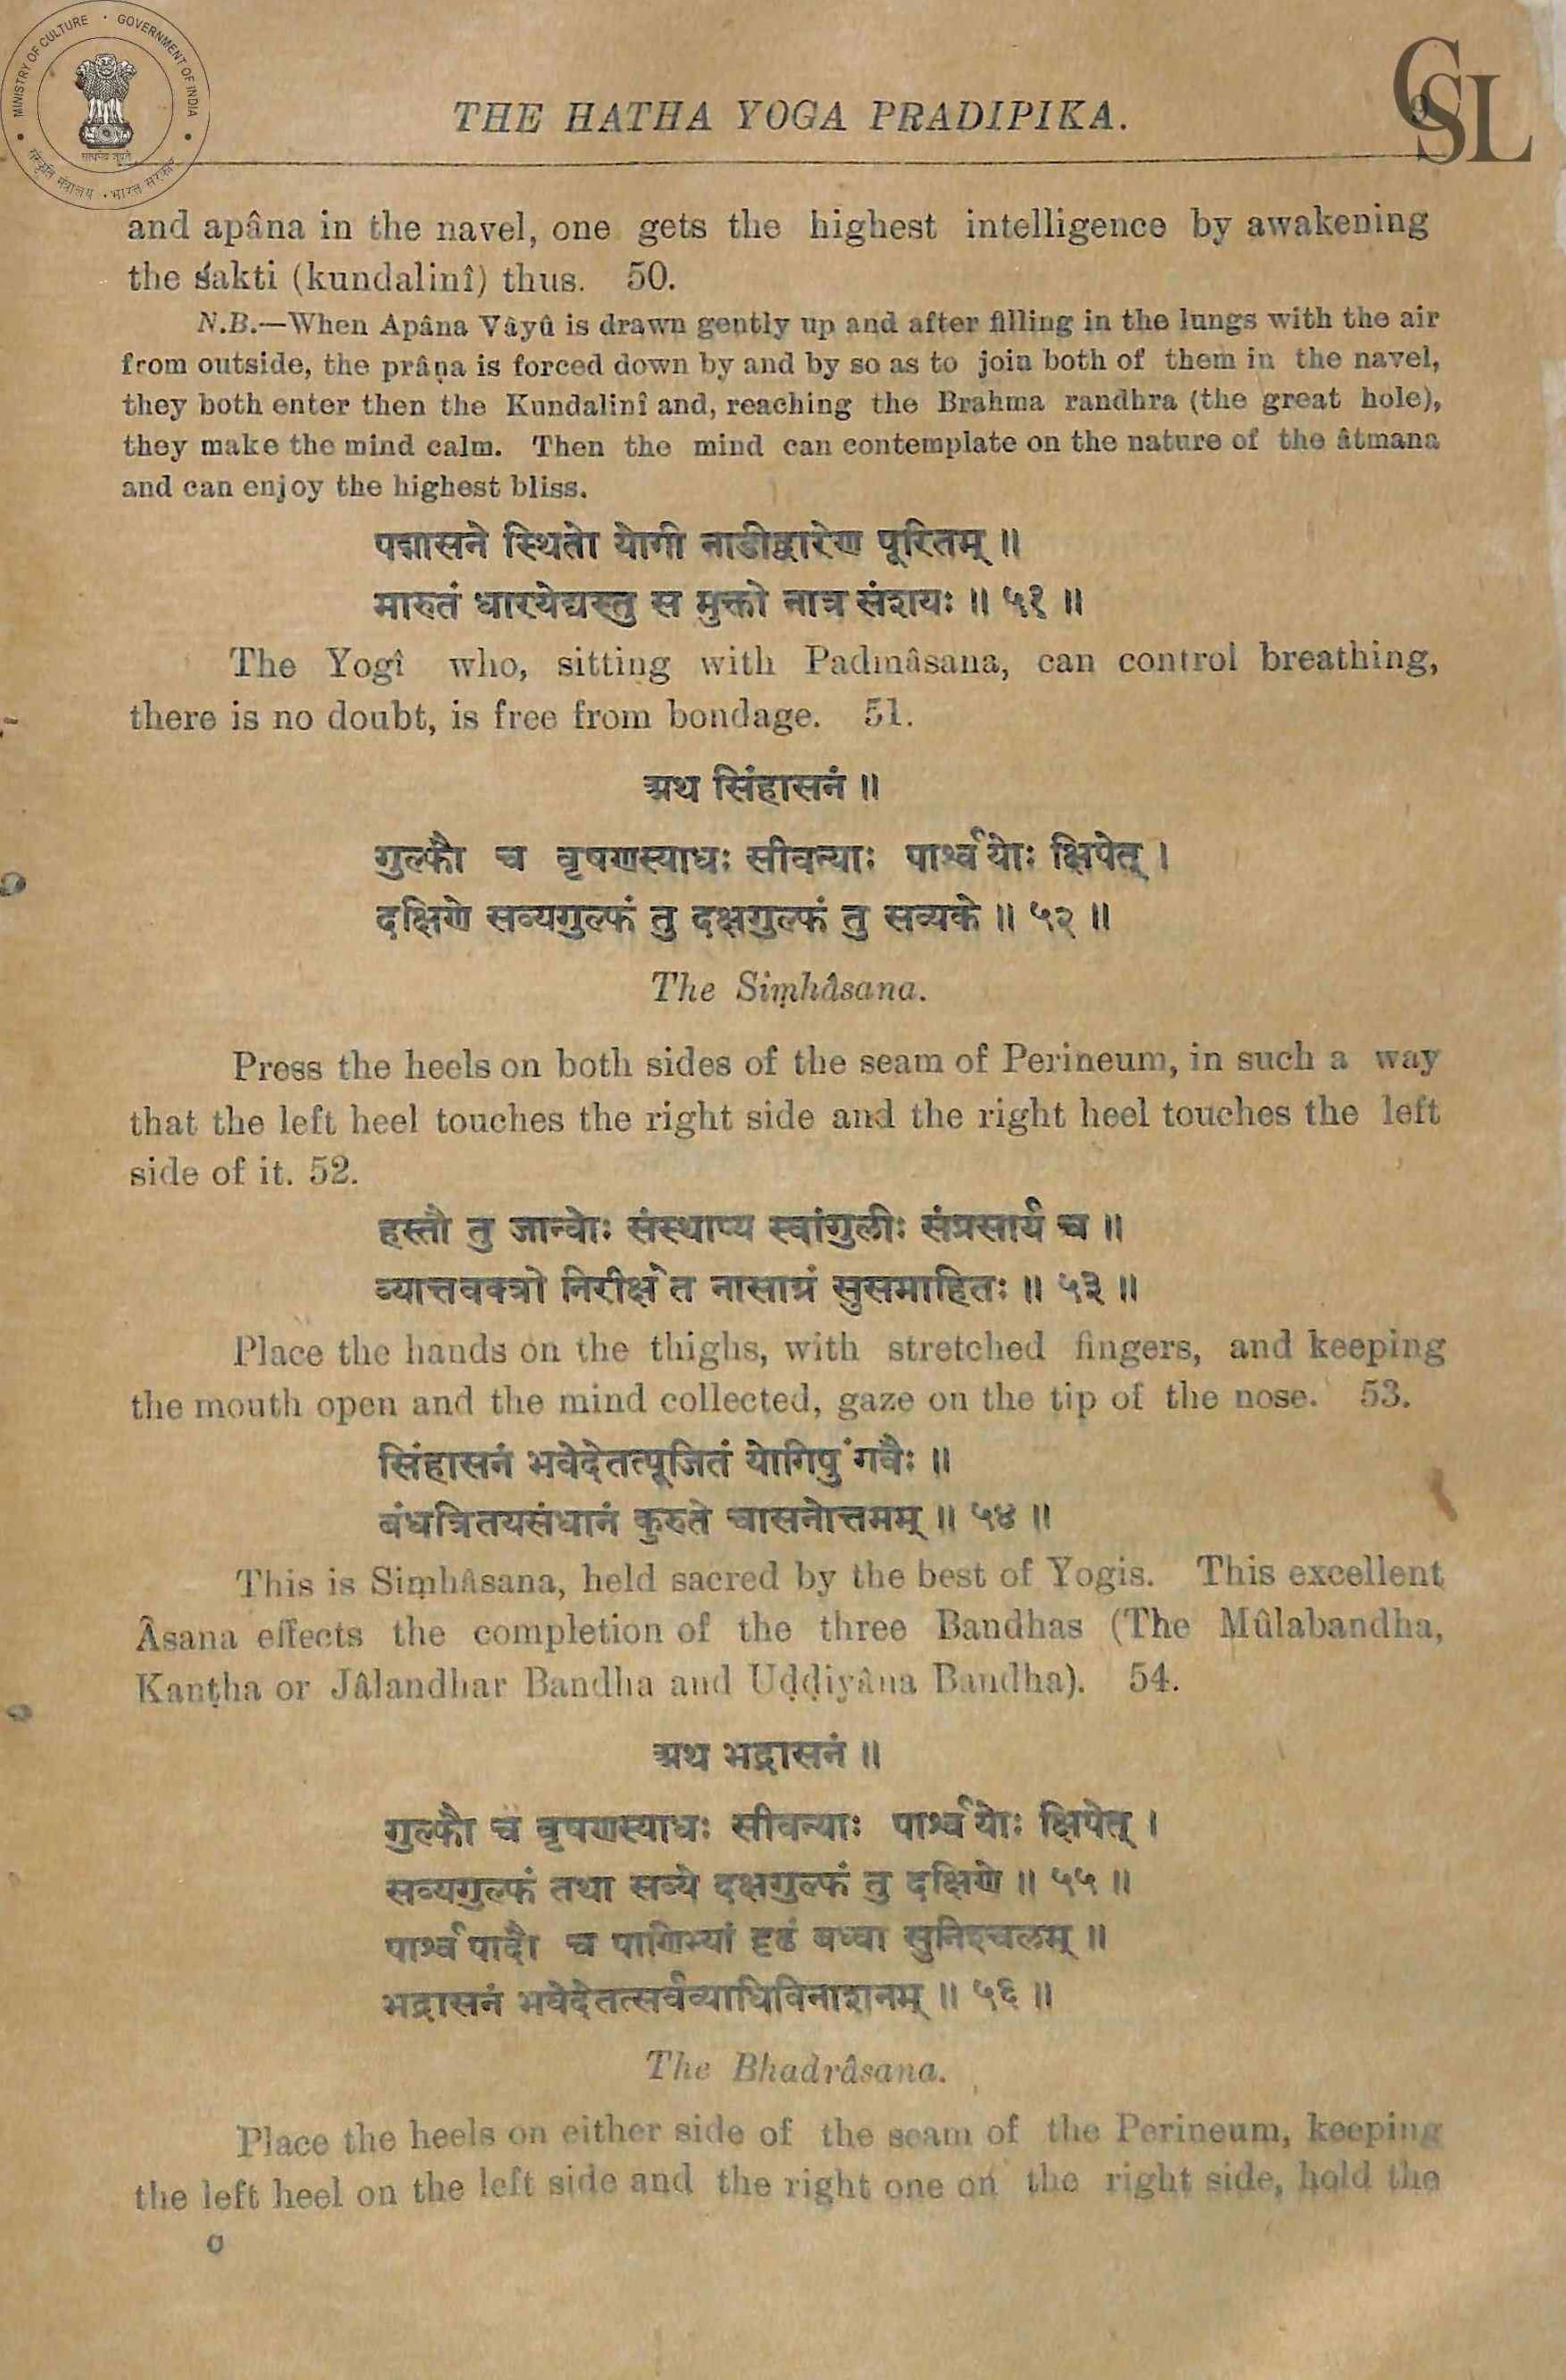 MINISTRY OF CULTURE · GOVERNMENT OF INDIA
संस्कृति मंत्रालय · भारत सरकार
THE HATHA YOGA PRADIPIKA.
GSL
and apâna in the navel, one gets the highest intelligence by awakening
the śakti (kundalinî) thus. 50.
N.B.—When Apâna Vâyû is drawn gently up and after filling in the lungs with the air
from outside, the prâṇa is forced down by and by so as to join both of them in the navel,
they both enter then the Kundalinî and, reaching the Brahma randhra (the great hole),
they make the mind calm. Then the mind can contemplate on the nature of the âtmana
and can enjoy the highest bliss.
पद्मासने स्थितो योगी नाडीद्वारेण पूरितम् ॥
मारुतं धारयेद्यस्तु स मुक्तो नात्र संशयः ॥ ५१ ॥
The Yogî who, sitting with Padmâsana, can control breathing,
there is no doubt, is free from bondage. 51.
अथ सिंहासनं ॥
गुल्फौ च वृषणस्याधः सीवन्याः पार्श्वयोः क्षिपेत् ।
दक्षिणे सव्यगुल्फं तु दक्षगुल्फं तु सव्यके ॥ ५२ ॥
The Siṃhâsana.
Press the heels on both sides of the seam of Perineum, in such a way
that the left heel touches the right side and the right heel touches the left
side of it. 52.
हस्तौ तु जान्वोः संस्थाप्य स्वांगुलीः संप्रसार्य च ॥
व्यात्तवक्त्रो निरीक्षेत नासाग्रं सुसमाहितः ॥ ५३ ॥
Place the hands on the thighs, with stretched fingers, and keeping
the mouth open and the mind collected, gaze on the tip of the nose. 53.
सिंहासनं भवेदेतत्पूजितं योगिपुंगवैः ॥
बंधत्रितयसंधानं कुरुते चासनोत्तमम् ॥ ५४ ॥
This is Siṃhâsana, held sacred by the best of Yogis. This excellent
Âsana effects the completion of the three Bandhas (The Mûlabandha,
Kanṭha or Jâlandhar Bandha and Uḍḍiyâna Bandha). 54.
अथ भद्रासनं ॥
गुल्फौ च वृषणस्याधः सीवन्याः पार्श्वयोः क्षिपेत् ।
सव्यगुल्फं तथा सव्ये दक्षगुल्फं तु दक्षिणे ॥ ५५ ॥
पार्श्वपादौ च पाणिभ्यां दृढं बध्वा सुनिश्चलम् ॥
भद्रासनं भवेदेतत्सर्वव्याधिविनाशनम् ॥ ५६ ॥
The Bhadrâsana.
Place the heels on either side of the seam of the Perineum, keeping
the left heel on the left side and the right one on the right side, hold the